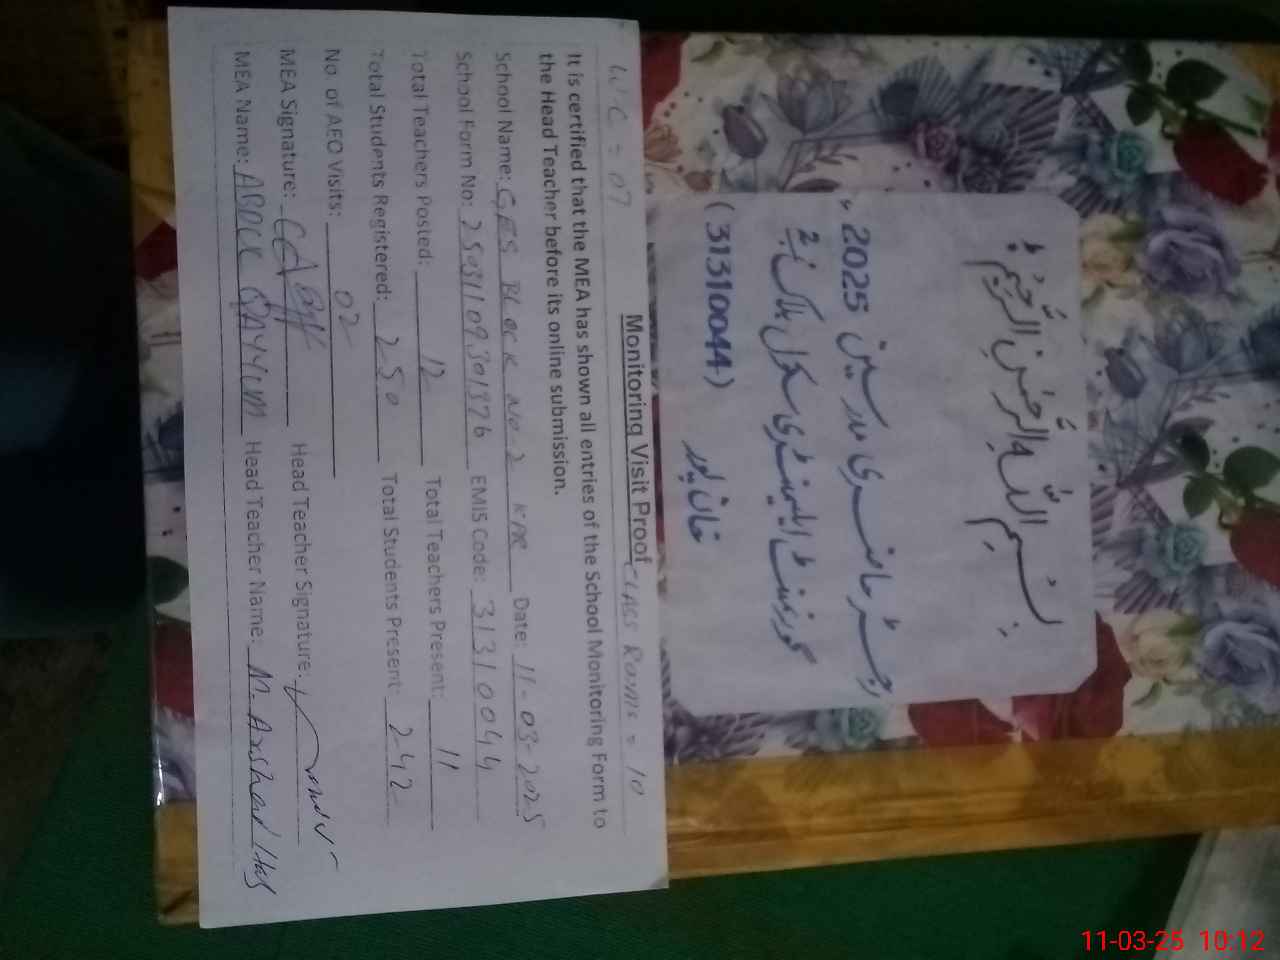 بِسْمِ اللّٰهِ الرَّحْمٰنِ الرَّحِيْمِ
رجسٹر حاضری مدرسین 2025ء
گورنمنٹ ایلیمنٹری سکول بلاک نمبر 2
خان پور
(31310044)
W.C = 07
CLASS ROOMS = 10
Monitoring Visit Proof
It is certified that the MEA has shown all entries of the School Monitoring Form to
the Head Teacher before its online submission.
School Name: GES BLOCK NO 2 KPR Date: 11-03-2025
School Form No: EMIS Code: 31310044
Total Teachers Posted: 12 Total Teachers Present: 11
Total Students Registered: 250 Total Students Present: 242
No. of AEO Visits: 02
MEA Signature: Head Teacher Signature:
MEA Name: ABDUL QAYYUM Head Teacher Name: M. Arshad
11-03-25 10:12